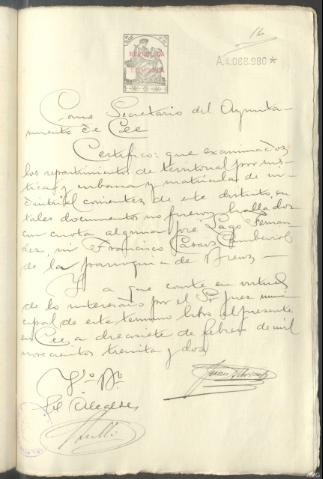 16
REPUBLICA
ESPAÑOLA
A4.088.980*
Como Secretario del Ayunta-
miento de Cee
Certifico: que examinados
los repartimientos de territorial por rús-
tica y urbana y matrícula de in-
dustrial corrientes de este distrito, en
tales documentos no fueron hallados
con cuota alguna José Lago Fernán-
dez, ni Francisco
de la parroquia de
Y a que conste en virtud
de lo interesado por el Sr. Juez muni-
cipal de este termino libro el presente
en Cee, a diecisiete de febrero de mil
novecientos treinta y dos
Vº Bº
El Alcalde